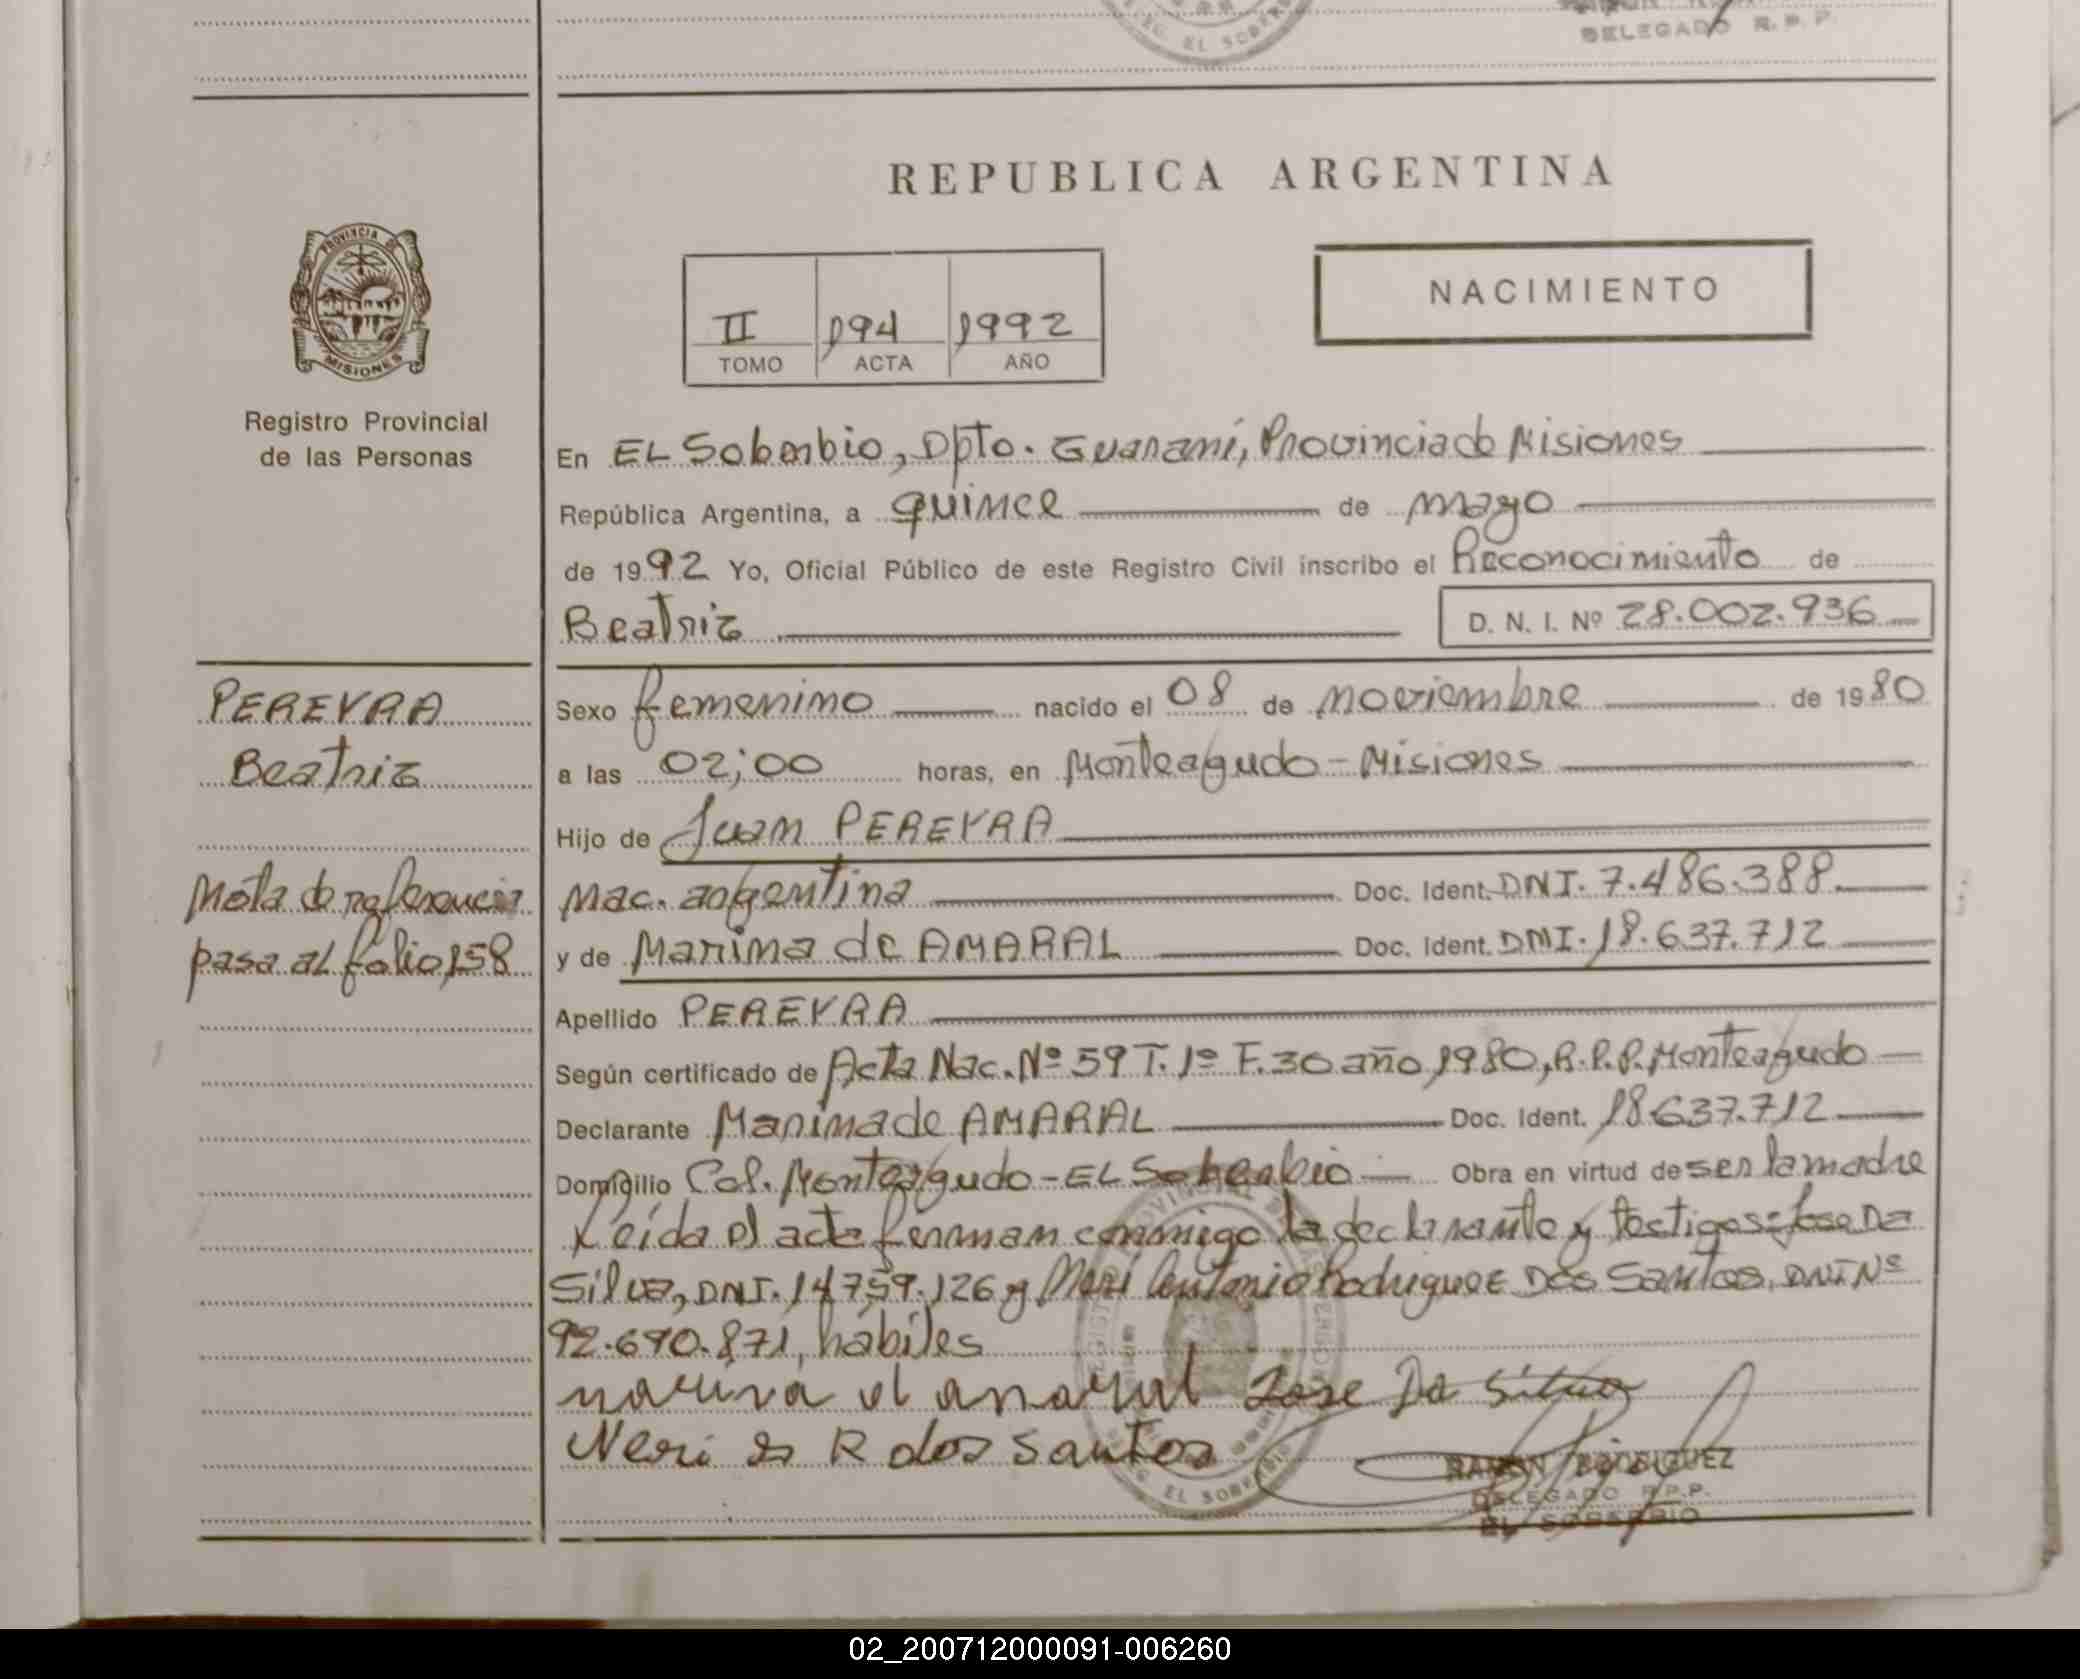 EL SOBERBIO
DELEGADO R.P.P.
REPUBLICA ARGENTINA
PROVINCIA DE
MISIONES
NACIMIENTO
II 194 1992
TOMO ACTA AÑO
Registro Provincial
de las Personas
En EL Soberbio, Dpto. Guaraní, Provincia de Misiones
República Argentina, a quince de mayo
de 1992 Yo, Oficial Público de este Registro Civil inscribo el Reconocimiento de
Beatriz D. N. I. Nº 28.002.936
PEREYRA
Beatriz
Nota de referencia
pasa al folio 158
Sexo femenino nacido el 08 de noviembre de 1980
a las 02;00 horas, en Monteagudo - Misiones
Hijo de Juan PEREYRA
Nac. argentina Doc. Ident. DNI. 7.486.388
y de Marina de AMARAL Doc. Ident. DNI. 18.637.712
Apellido PEREYRA
Según certificado de Acta Nac. Nº 59 T. 1º F. 30 año 1980, R.P.P. Monteagudo
Declarante Marina de AMARAL Doc. Ident. 18.637.712
Domicilio Col. Monteagudo - EL Soberbio Obra en virtud de ser la madre
Leída el acta firman conmigo la declarante y testigos: Jose Da
Silva, DNI. 14.759.126 y Neri Antonio Rodriguez Dos Santos, DNI Nº
92.690.871, hábiles
marina d amaral Jose Da Silva
Neri R dos Santos
RAMON RODRIGUEZ
DELEGADO R.P.P.
EL SOBERBIO
02_200712000091-006260